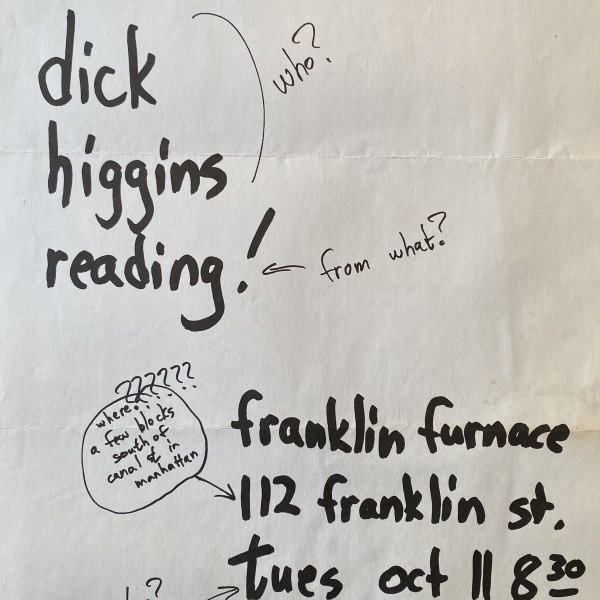 dick
who?
higgins
reading!
from what?
??????
where???
a few blocks
south of
canal st in
manhattan
franklin furnace
112 franklin st.
tues oct 11 8³⁰